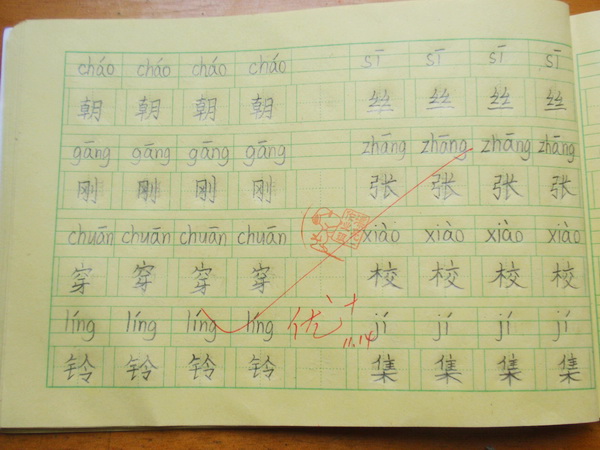 cháo cháo cháo cháo sī sī sī sī
朝 朝 朝 朝 丝 丝 丝 丝
gāng gāng gāng gāng zhāng zhāng zhāng zhāng
刚 刚 刚 刚 张 张 张 张
chuān chuān chuān chuān xiào xiào xiào xiào
穿 穿 穿 穿 校 校 校 校
líng líng líng líng 优+ 11.14 jí jí jí jí
铃 铃 铃 铃 集 集 集 集